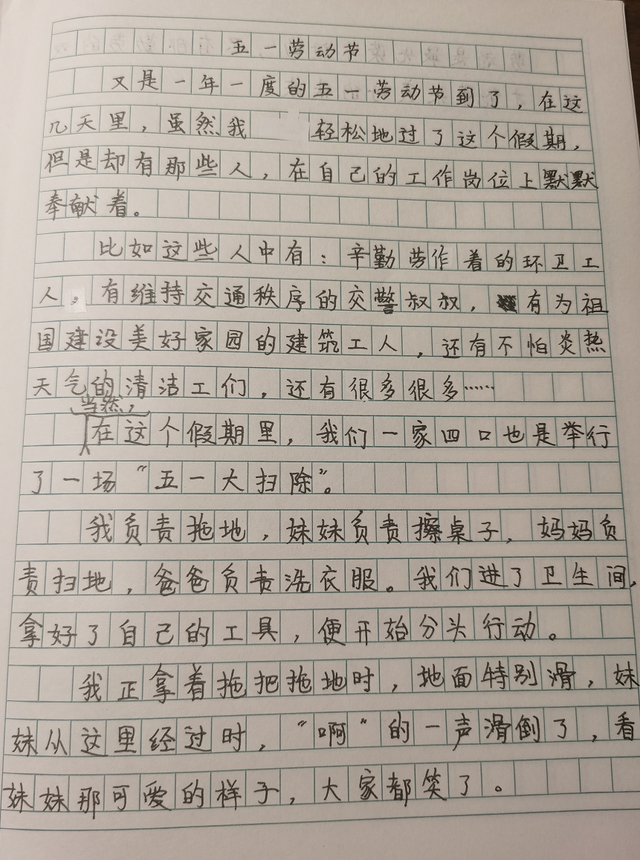 五一劳动节
又是一年一度的五一劳动节到了，在这
几天里，虽然我 轻松地过了这个假期，
但是却有那些人，在自己的工作岗位上默默
奉献着。
比如这些人中有：辛勤劳作着的环卫工
人，有维持交通秩序的交警叔叔，有为祖
国建设美好家园的建筑工人，还有不怕炎热
天气的清洁工们，还有很多很多……
当然，
在这个假期里，我们一家四口也是举行
了一场“五一大扫除”。
我负责拖地，妹妹负责擦桌子，妈妈负
责扫地，爸爸负责洗衣服。我们进了卫生间，
拿好了自己的工具，便开始分头行动。
我正拿着拖把拖地时，地面特别滑，妹
妹从这里经过时，“啊”的一声滑倒了，看
妹妹那可爱的样子，大家都笑了。